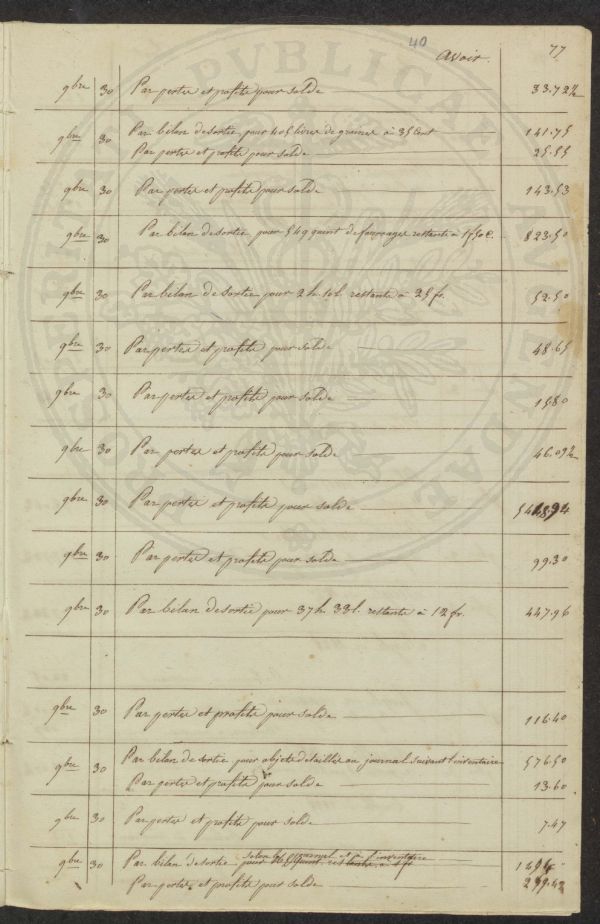 40
avoir. 77
9bre 30 Par pertes et profits pour solde 33.72½
9bre 30 Par bilan de sortie pour 405 livres de graines à 35 Cent 141.75
Par pertes et profits pour solde 25.55
9bre 30 Par pertes et profits pour solde 143.53
9bre 30 Par bilan de sortie pour 549 quint de fourrages restante à 1f50c. 823.50
9bre 30 Par bilan de sortie pour 2h. 10l. restante à 25 fr. 52.50
9bre 30 Par pertes et profits pour solde 48.65
9bre 30 Par pertes et profits pour solde 15.80
9bre 30 Par pertes et profits pour solde 46.09½
9bre 30 Par pertes et profits pour solde
9bre 30 Par pertes et profits pour solde 99.30
9bre 30 Par bilan de sortie pour 37h. 33l. restante à 12 fr. 447.96
9bre 30 Par pertes et profits pour solde 116.40
9bre 30 Par bilan de sortie pour objets detaillés au journal suivant l'inventaire 576.50
Par pertes et profits pour solde 13.60
9bre 30 Par pertes et profits pour solde 7.47
selon le journal et l'inventaire
9bre 30 Par bilan de sortie
Par pertes et profits pour solde